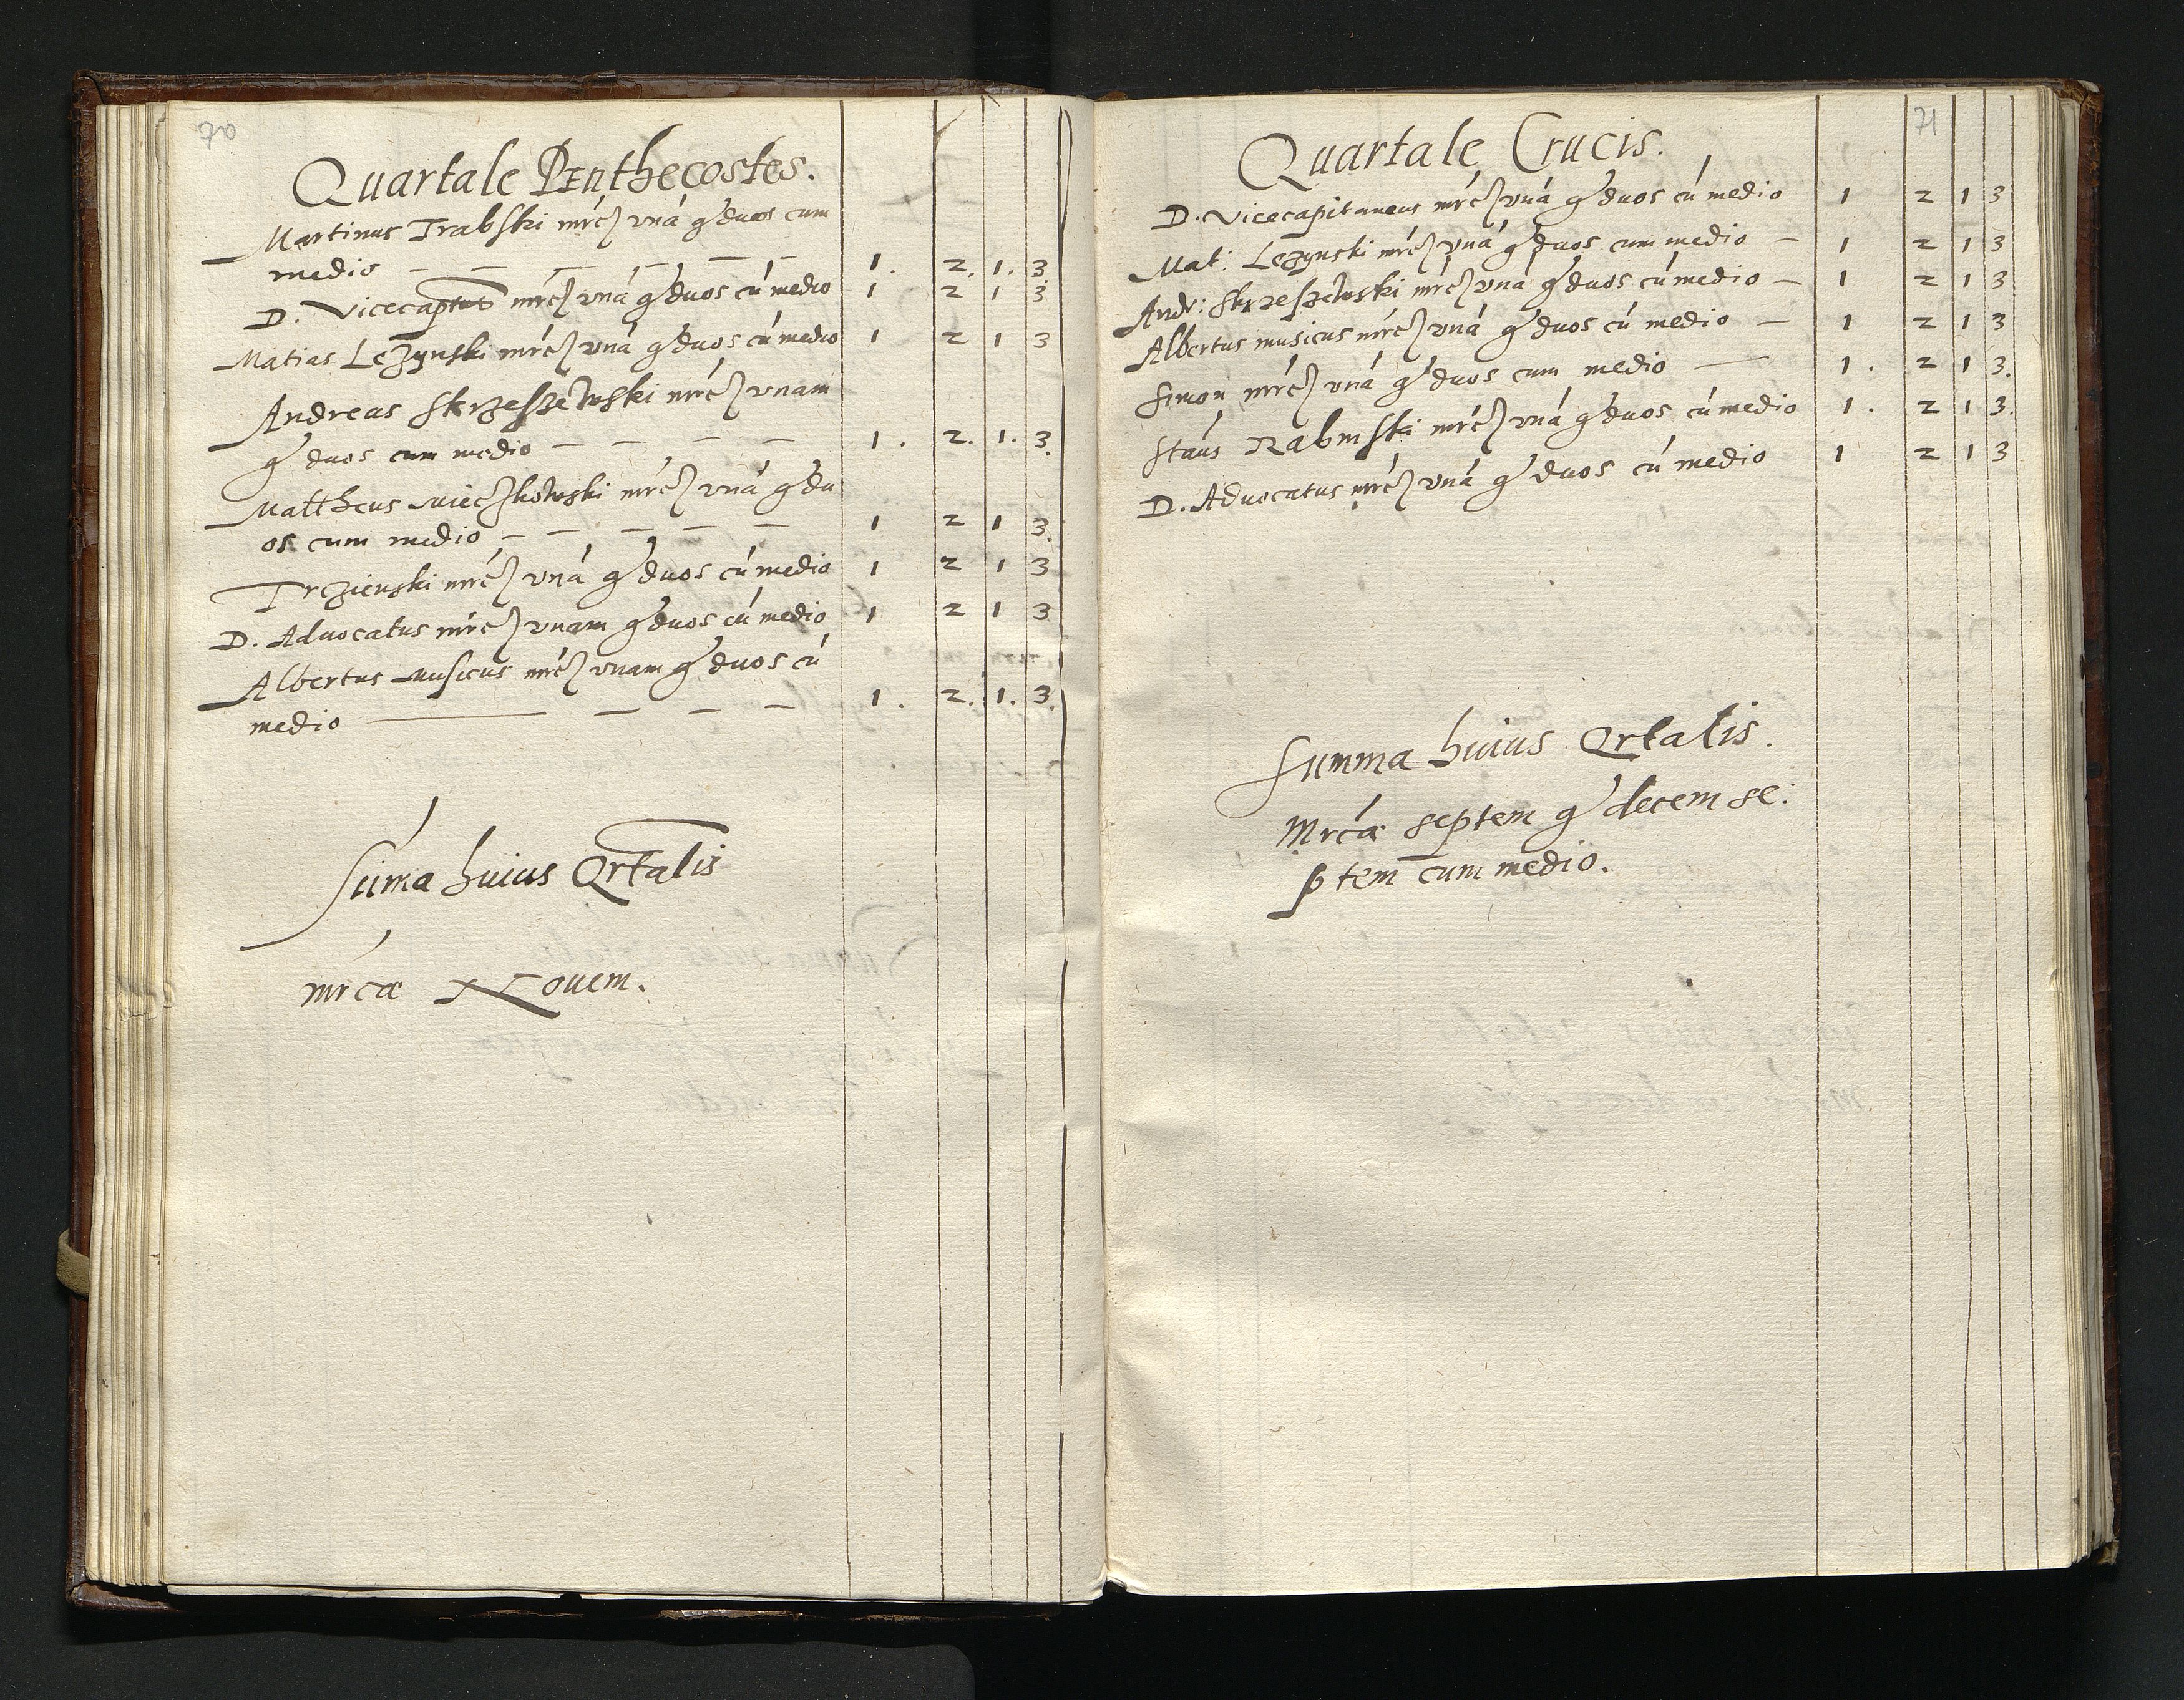 70
Quartale Penthecostes.
Martinus Trabski mrć unā g duos cum
medio — — — — — — 1. 2. 1. 3.
D. Vicecaptus mrć unā g duos cū medio 1 2 1 3
Matias Lezynski mrć unā g duos cū medio 1 2 1 3
Andreas Skrzeszewski mrć unam
g duos cum medio — — — — 1. 2. 1. 3.
Mattheus Mieczkowski mrć unā g du
os cum medio — — — — — 1 2 1 3.
Trzienski mrć unā g duos cū medio 1 2 1 3
D. Aduocatus mrć unam g duos cū medio 1 2 1 3
Albertus musicus mrć unam g duos cū
medio — — — — 1. 2. 1. 3.
Sūma huius Qrtalis
mrcæ Nouem.
71
Quartale Crucis.
D. Vicecapitaneus mrć unā g duos cū medio 1 2 1 3
Mat: Lezynski mrć unā g duos cum medio — 1 2 1 3
Andr: Skrzeszewski mrć unā g duos cū medio — 1 2 1 3
Albertus musicus mrć unā g duos cū medio — 1 2 1 3
Simon mrć unā g duos cum medio — 1. 2 1 3.
Staūs Rabinski mrć unā g duos cū medio 1. 2 1 3.
D. Aduocatus mrć unā g duos cū medio 1 2 1 3
Summa huius Qrtalis.
Mrcæ septem g decem se:
ptem cum medio.